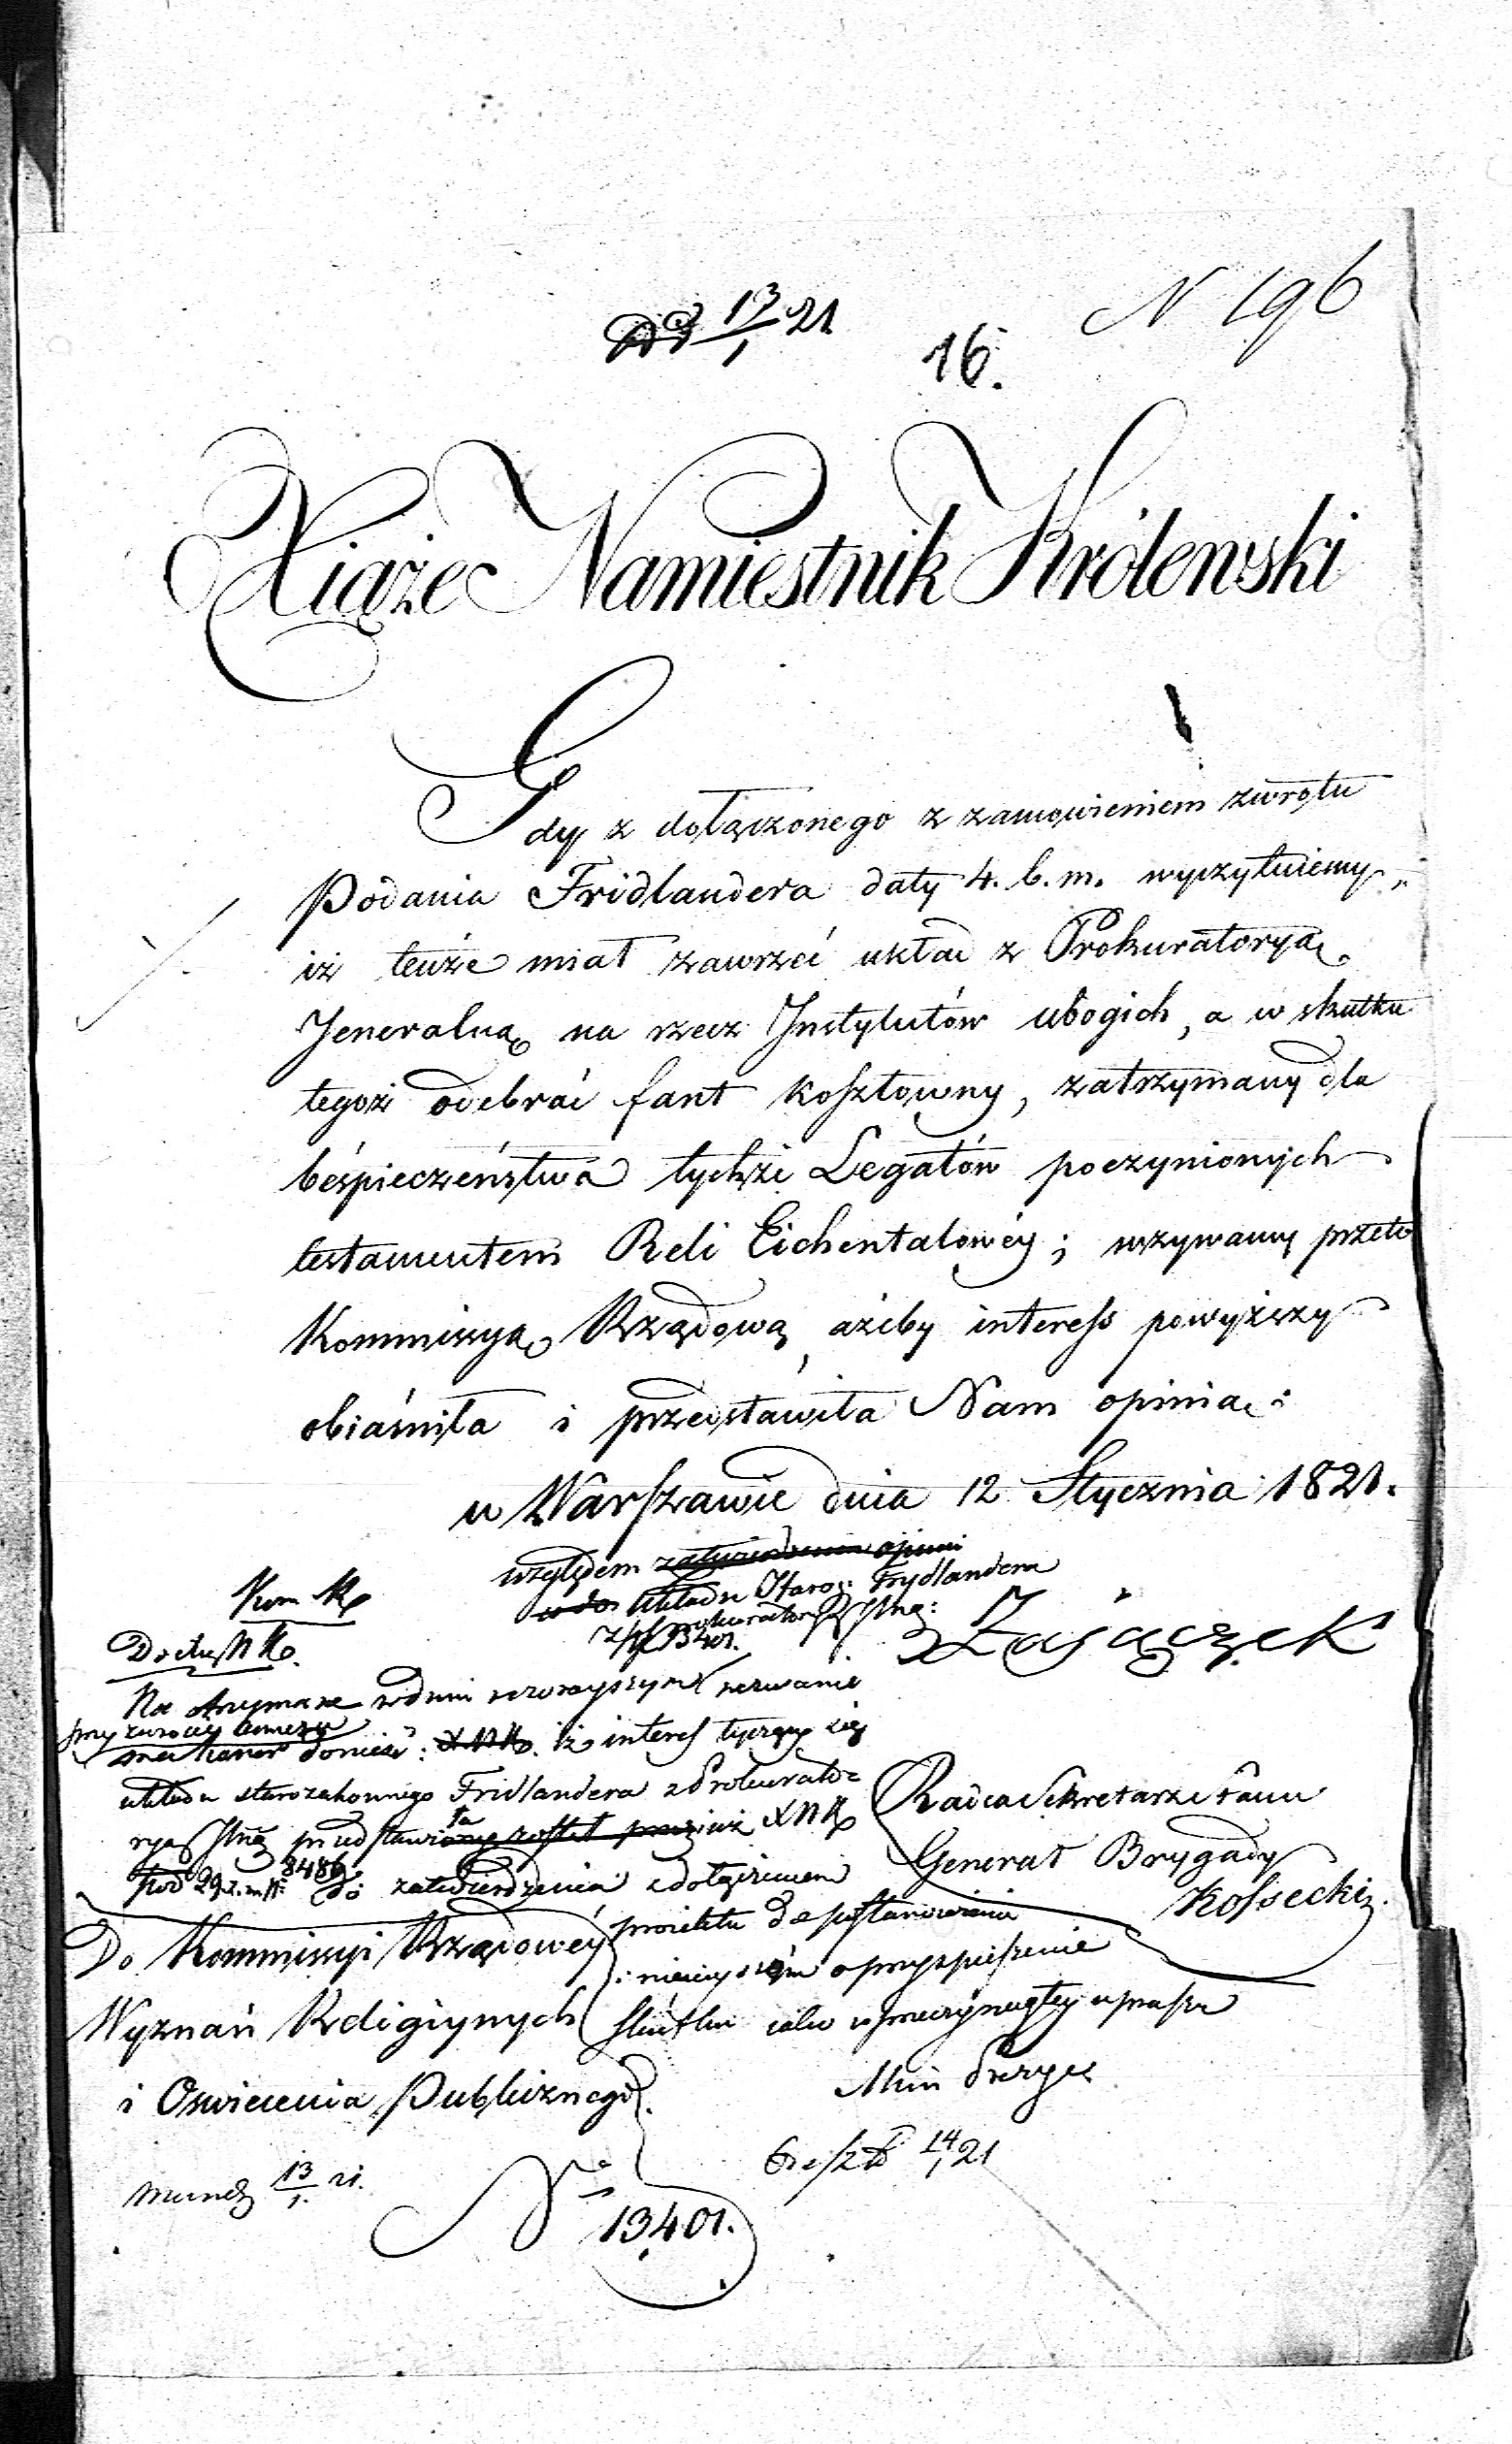 N 196
13/1 21
16.
Xiąże Namiestnik Królewski
Gdy z dołączonego z zamówieniem zwrotu
Podania Fridlandera daty 4. b. m. wyczytuiemy,
iż tenże miał zawrzeć układ z Prokuratoryą
Jeneralną na rzecz Instytutów ubogich, a w skutku
tegoż odebrać fant kosztowny, zatrzymany dla
béspieczeństwa tychże Legatów poczynionych
testamentem Reli Eichentalowéy; wzywamy przeto
Kommissyą Rządową, ażeby interess powyższy
obiaśniła i przedstawiła Nam opinią.
w Warszawie dnia 12 Stycznia 1821.
względem zatwierdzenia opinii
układu Staroz: Frydlandera
Zajączek
Kom R
Do
Na otrzymane w dniu wezwanie
donieść: iż interes tyczący się
układu starozakonnego Fridlandera z Prokurato-
ryą przedstawiła XNK
pod 29 8486 do zatwierdzenia z dołączeniem
proiektu do postanowienia
o przyspieszenie
skutku uprasza
Radca Sekretarz Stanu
Generał Brygady
Kossecki
Do Kommissyi Rządowéy
Wyznań Religiynych
i Oswiecenia Publicznego.
Min Prezyd
13/1 21.
14/1 21
No 13401.